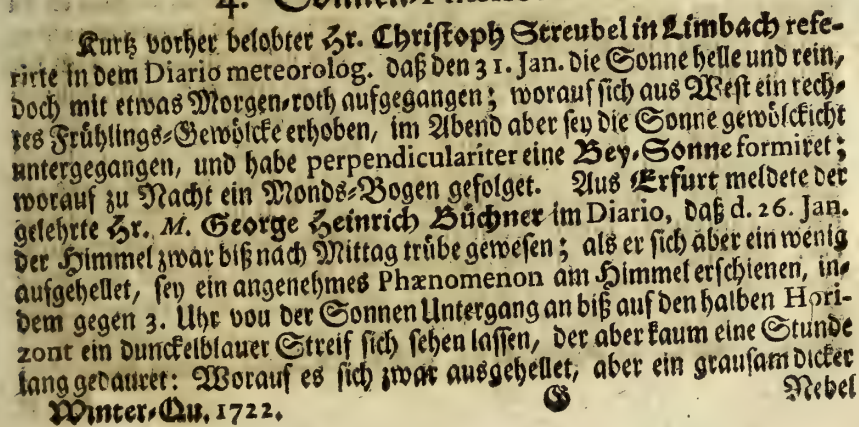 4. Sonnen-
Kurtz vorher belobter Hr. Christoph Streubel in Limbach refe-
rirte in dem Diario meteorolog. daß den 31. Jan. die Sonne helle und rein,
doch mit etwas Morgen-roth aufgegangen; worauf sich aus West ein rech-
tes Frühlings-Gewölcke erhoben, im Abend aber sey die Sonne gewölckicht
untergegangen, und habe perpendiculariter eine Bey-Sonne formiret;
worauf zu Nacht ein Monds-Bogen gefolget. Aus Erfurt meldete der
gelehrte Hr. M. George Heinrich Büchner im Diario, daß d. 26. Jan.
der Himmel zwar biß nach Mittag trübe gewesen; als er sich aber ein wenig
aufgehellet, sey ein angenehmes Phænomenon am Himmel erschienen, in-
dem gegen 3. Uhr vou der Sonnen Untergang an biß auf den halben Hori-
zont ein dunckelblauer Streif sich sehen lassen, der aber kaum eine Stunde
lang gedauret: Worauf es sich zwar ausgehellet, aber ein grausam dicker
Winter-Qu. 1722. G Nebel